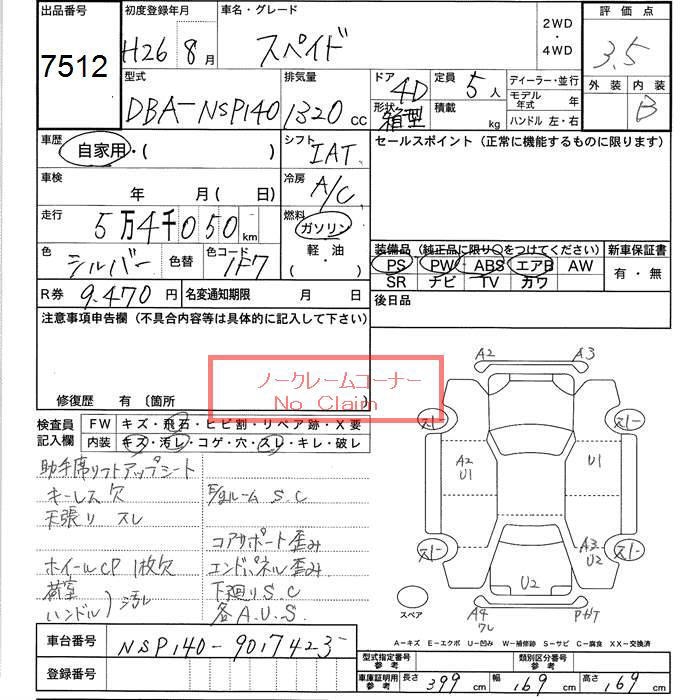 出品番号 初度登録年月 車名・グレード 2WD ・ 4WD 評価点
7512 H26年 8月 スペイド 3.5
型式 排気量 ドア 4D 定員 5人 ディーラー・並行 外装 内装
DBA-NSP140 1320cc 形状 箱型 積載 kg モデル年式 年 B
ハンドル 左・右
車歴 自家用・( ) シフト IAT セールスポイント (正常に機能するものに限ります)
車検 年 月( 日) 冷房 A/C
走行 5万4千050km 燃料 ガソリン
色 シルバー 色替 色コード 1F7 軽・油 ( ・ )
装備品 (純正品に限り○をつけてください) 新車保証書
PS PW ABS エアB AW 有・無
SR ナビ TV カワ
R券 9.470円 名変通知期限 月 日 後日品
注意事項申告欄 (不具合内容等は具体的に記入して下さい)
ノークレームコーナー
No Claim
修復歴 有 〔箇所
検査員記入欄 FW キズ・飛石・ヒビ割・リペア跡・X要
内装 キズ・汚レ・コゲ・穴・スレ・キレ・破レ
助手席リフトアップシート
キーレス欠 E/gルーム S.C
天張り スレ
コアサポート歪み
ホイールCP 1枚欠 エンドパネル歪み
荷室 下廻りS.C
ハンドル)汚レ 各A.U.S.
A2 A3
A2 U1
U1
A3 U2
U2
スペア
A4
A-キズ E-エクボ U-凹み W-補修跡 S-サビ C-腐食 XX-交換済
車台番号 NSP140-9017423
登録番号
型式指定番号 参考 類別区分番号 参考
車庫証明用 参考 長さ 399cm 幅 169cm 高さ 169cm